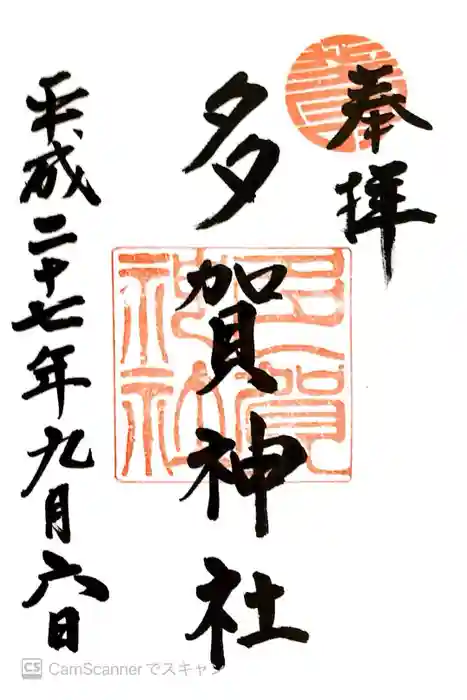 奉拝
多賀神社
平成二十七年九月六日
多賀
神社
CS CamScannerでスキャン